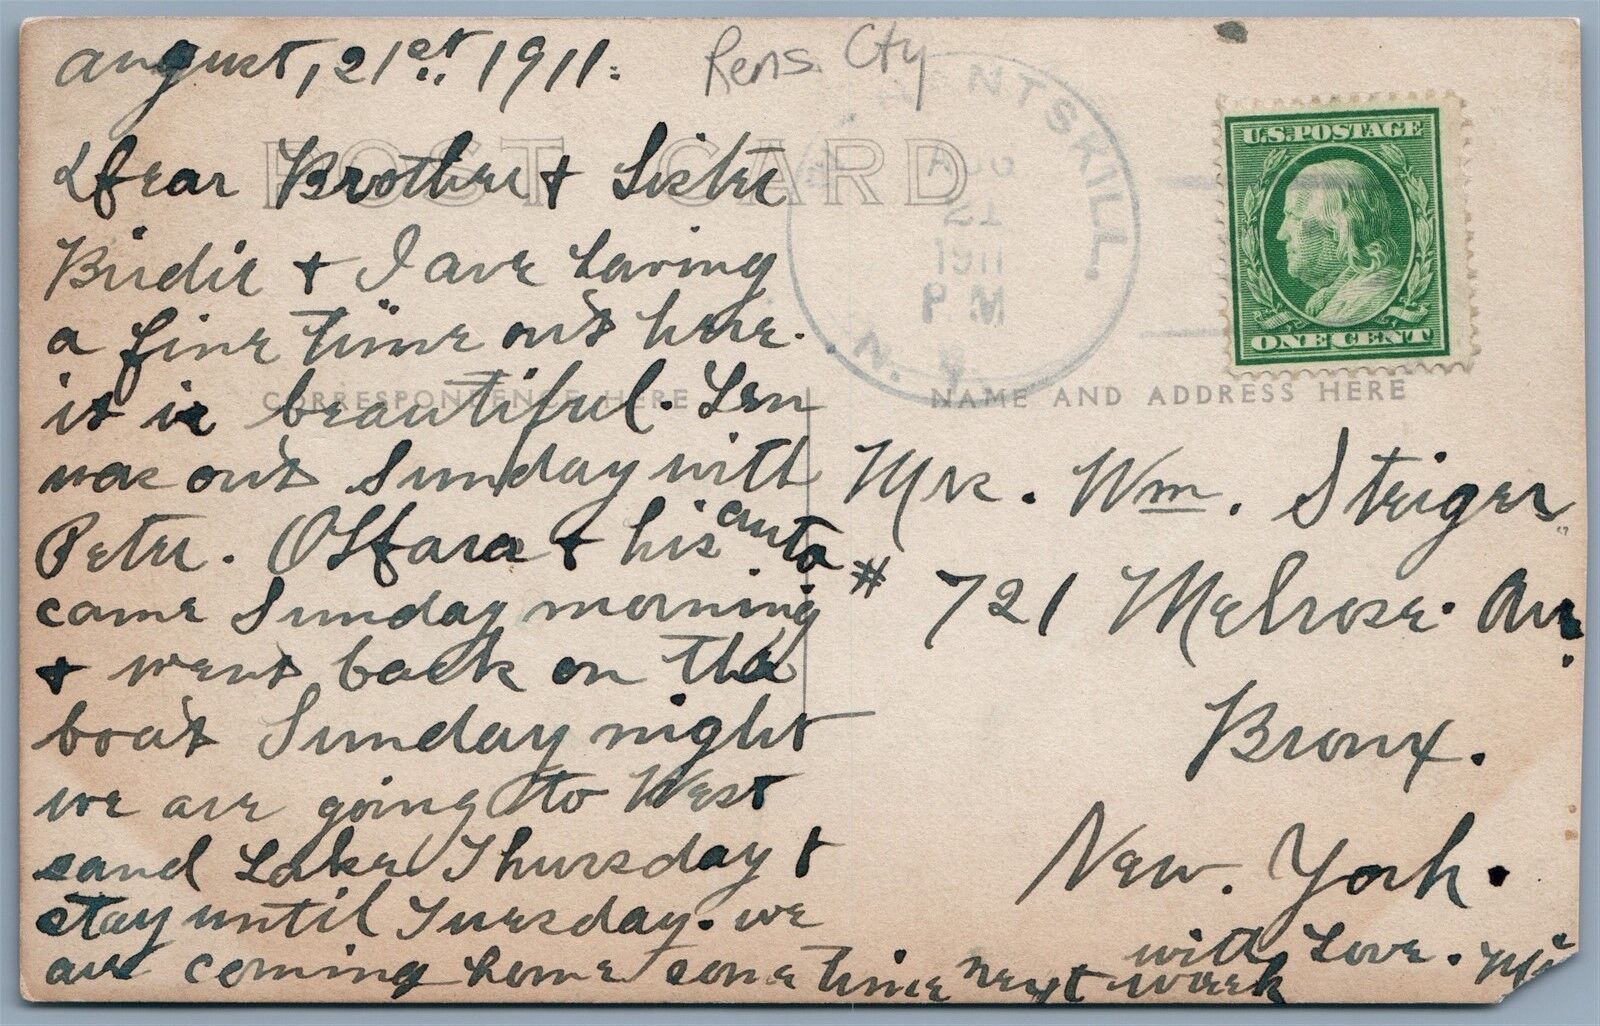 august, 21st 1911.
Rens. Cty
POST CARD
NTSKILL.
AUG
21
1911
P.M
N. Y.
U.S. POSTAGE
ONE CENT
Dear Brother + Sister
Birdie + I are having
a fine time out here.
CORRESPONDENCE HERE
NAME AND ADDRESS HERE
it is beautiful. Len
was out Sunday with
Peter. O'Hara + his auto
came Sunday morning
+ went back on the
boat Sunday night
we are going to West
sand Lake Thursday +
stay until Tuesday. we
are coming home some time next week
with Love.
Mrs. Wm. Steiger
# 721 Melrose. Av.
Bronx.
New. York.